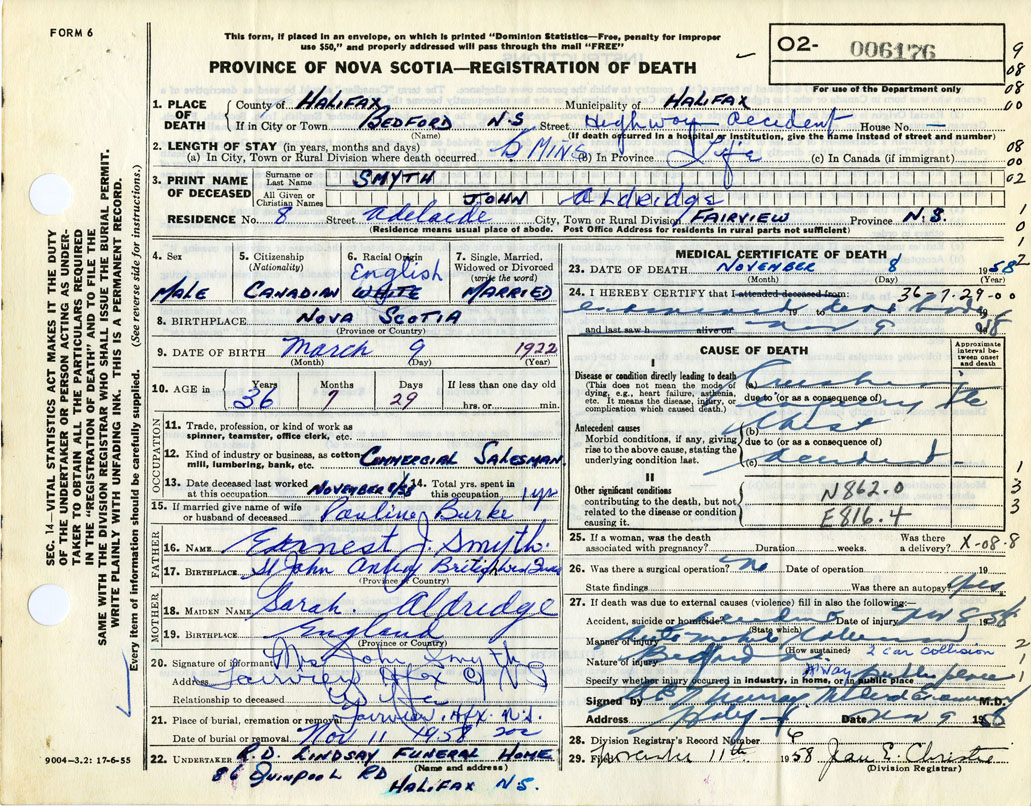 FORM 6
This form, if placed in an envelope, on which is printed "Dominion Statistics—Free, penalty for improper
use $50," and properly addressed will pass through the mail "FREE"
PROVINCE OF NOVA SCOTIA—REGISTRATION OF DEATH
O2- 006176
For use of the Department only
1. PLACE OF DEATH
County of HALIFAX Municipality of HALIFAX
If in City or Town BEDFORD N.S. Street Highway Accident House No. —
(Name) (If death occurred in a hospital or institution, give the name instead of street and number)
2. LENGTH OF STAY (in years, months and days)
(a) In City, Town or Rural Division where death occurred MINS (b) In Province Life (c) In Canada (if immigrant)
3. PRINT NAME OF DECEASED
Surname or Last Name SMYTH
All Given or Christian Names JOHN ALdRidge
RESIDENCE No. 8 Street Adelaide City, Town or Rural Division FAIRVIEW Province N.S.
(Residence means usual place of abode. Post Office Address for residents in rural parts not sufficient)
4. Sex
MALE
5. Citizenship (Nationality)
CANADIAN
6. Racial Origin
English
WHITE
7. Single, Married, Widowed or Divorced (write the word)
MARRIED
8. BIRTHPLACE NOVA SCOTIA
(Province or Country)
9. DATE OF BIRTH March 9 1922
(Month) (Day) (Year)
10. AGE in Years Months Days If less than one day old
36 7 29 hrs. or min.
OCCUPATION
11. Trade, profession, or kind of work as spinner, teamster, office clerk, etc.
12. Kind of industry or business, as cotton mill, lumbering, bank, etc. COMMERCIAL SALESMAN
13. Date deceased last worked at this occupation NOVEMBER 8/58 14. Total yrs. spent in this occupation 1 yr
15. If married give name of wife or husband of deceased Pauline Burke
FATHER
16. NAME Earnest J. Smyth.
17. BIRTHPLACE St John Antig British
(Province or Country)
MOTHER
18. MAIDEN NAME Sarah. Aldridge
19. BIRTHPLACE England
(Province or Country)
20. Signature of informant Mrs. John Smyth
Address Fairview Hfx Co NS
Relationship to deceased Wife
21. Place of burial, cremation or removal Fairview, Hfx. N.S.
Date of burial or removal Nov 11 1958
22. UNDERTAKER R.D. LINDSAY FUNERAL HOME
(Name and address)
86 QUINPOOL RD
HALIFAX N.S.
MEDICAL CERTIFICATE OF DEATH
23. DATE OF DEATH NOVEMBER 8 1958
(Month) (Day) (Year)
24. I HEREBY CERTIFY that I attended deceased from: 36-7-29-00
examined dead body
19 to 19
and last saw h alive on Nov 9 58
CAUSE OF DEATH
Approximate interval between onset and death
I
Disease or condition directly leading to death
(This does not mean the mode of dying, e.g., heart failure, asthenia, etc. It means the disease, injury, or complication which caused death.)
(a) Crushing
due to (or as a consequence of)
injury to
Antecedent causes
Morbid conditions, if any, giving rise to the above cause, stating the underlying condition last.
(b) chest
due to (or as a consequence of)
(c) accident
II
Other significant conditions
contributing to the death, but not related to the disease or condition causing it.
N862.0
E816.4
25. If a woman, was the death associated with pregnancy? Duration weeks. Was there a delivery? X-08-8
26. Was there a surgical operation? No Date of operation 19
State findings Was there an autopsy? Yes
27. If death was due to external causes (violence) fill in also the following:
Accident, suicide or homicide? accident Date of injury Nov 8 1958
(State which)
Manner of injury automobile collision
(How sustained) 2 car collision
Nature of injury Bedford
Specify whether injury occurred in industry, in home, or in public place Hiway public place
Signed by Murray Medical Examiner M.D.
Address Hfx Date Nov 9 1958
28. Division Registrar's Record Number 6
29. Filed November 11th 1958 Jean E. Christie
(Division Registrar)
SEC. 14—VITAL STATISTICS ACT MAKES IT THE DUTY
OF THE UNDERTAKER OR PERSON ACTING AS UNDER-
TAKER TO OBTAIN ALL THE PARTICULARS REQUIRED
IN THE "REGISTRATION OF DEATH" AND TO FILE THE
SAME WITH THE DIVISION REGISTRAR WHO SHALL ISSUE THE BURIAL PERMIT.
WRITE PLAINLY WITH UNFADING INK. THIS IS A PERMANENT RECORD.
Every item of information should be carefully supplied. (See reverse side for instructions.)
9004—3.2: 17-6-55
9
08
08
00
08
00
02
1
0
1
02
1
3
3
2
1
1